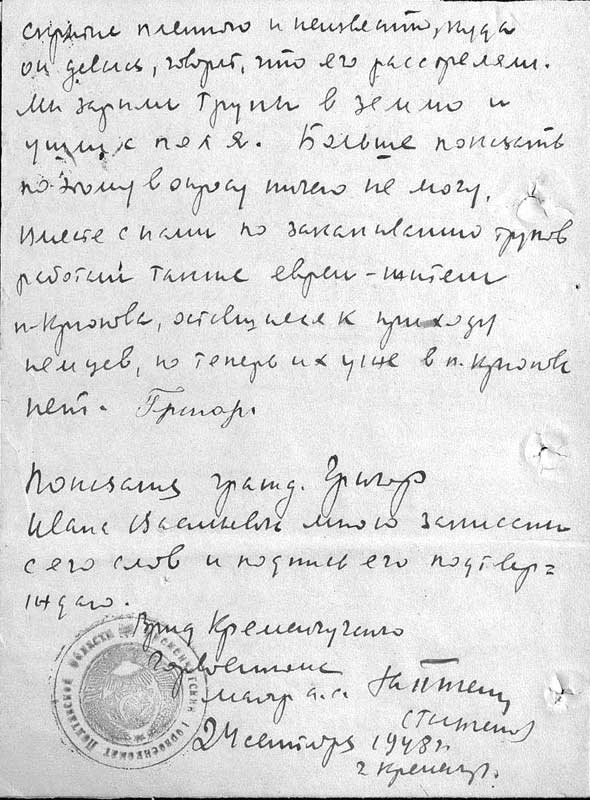 скрытие пленного и неизвестно, куда
он делись, говорят, что его расстреляли.
Мы зарыли трупы в землю и
ушли с поля. Больше показать
по этому вопросу ничего не могу.
Вместе с нами по закапыванию трупов
работали также евреи-жители
п. Крюкова, оставшиеся к приходу
немцев, но теперь их уже в п. Крюкове
нет.
Показания гражд. Григор
Ивана Васильевич мною записаны
с его слов и подпись его подтвер=
ждаю.
Врид Кременчугского
Горвоенкома
майор а.с.
24 сентября 1948 г.
г. Кременчуг.